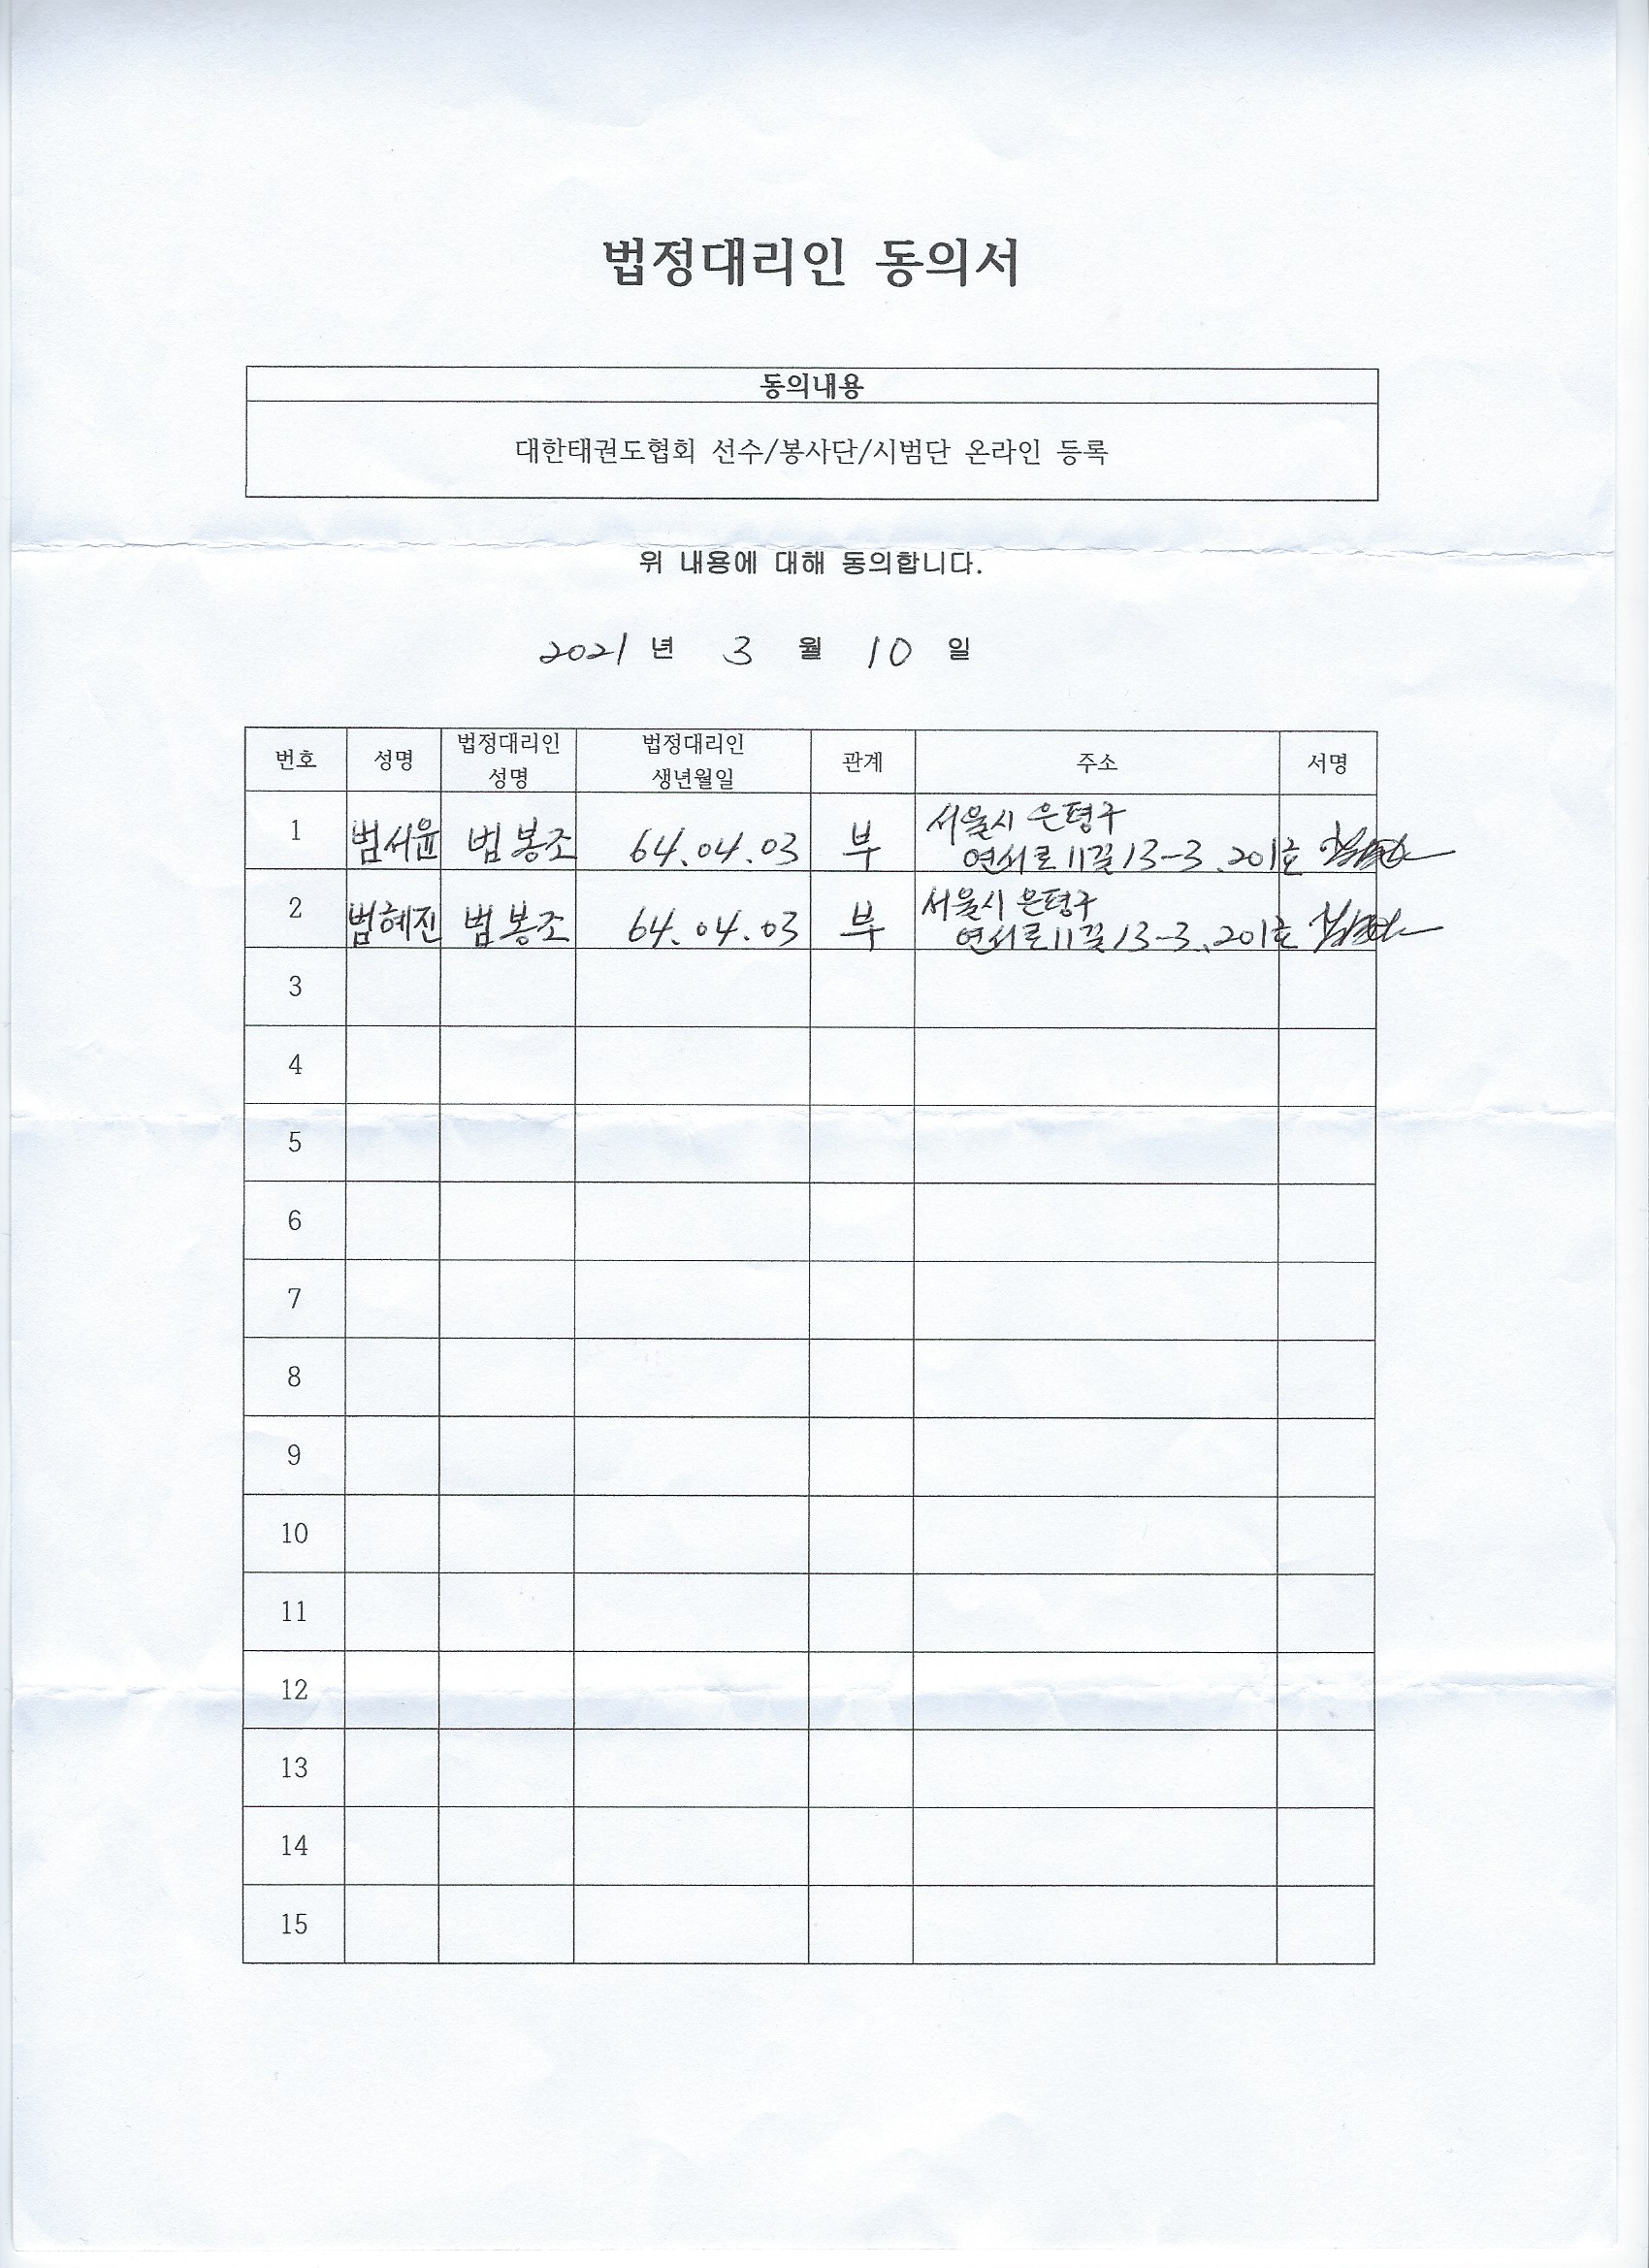 법정대리인 동의서
동의내용
대한태권도협회 선수/봉사단/시범단 온라인 등록
위 내용에 대해 동의합니다.
2021 년 3 월 10 일
번호 성명 법정대리인 성명 법정대리인 생년월일 관계 주소 서명
1 범서윤 범봉조 64.04.03 부 서울시 은평구
연서로11길 13-3, 201호
2 범혜진 범봉조 64.04.03 부 서울시 은평구
연서로11길 13-3, 201호
3
4
5
6
7
8
9
10
11
12
13
14
15